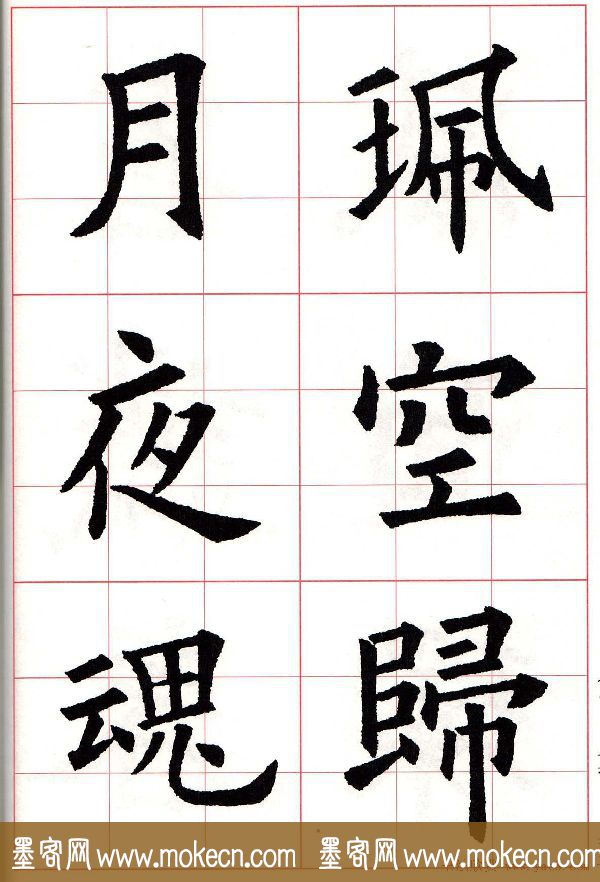 珮空歸
月夜魂
墨客网 www.mokecn.com 墨客网 www.mokecn.com